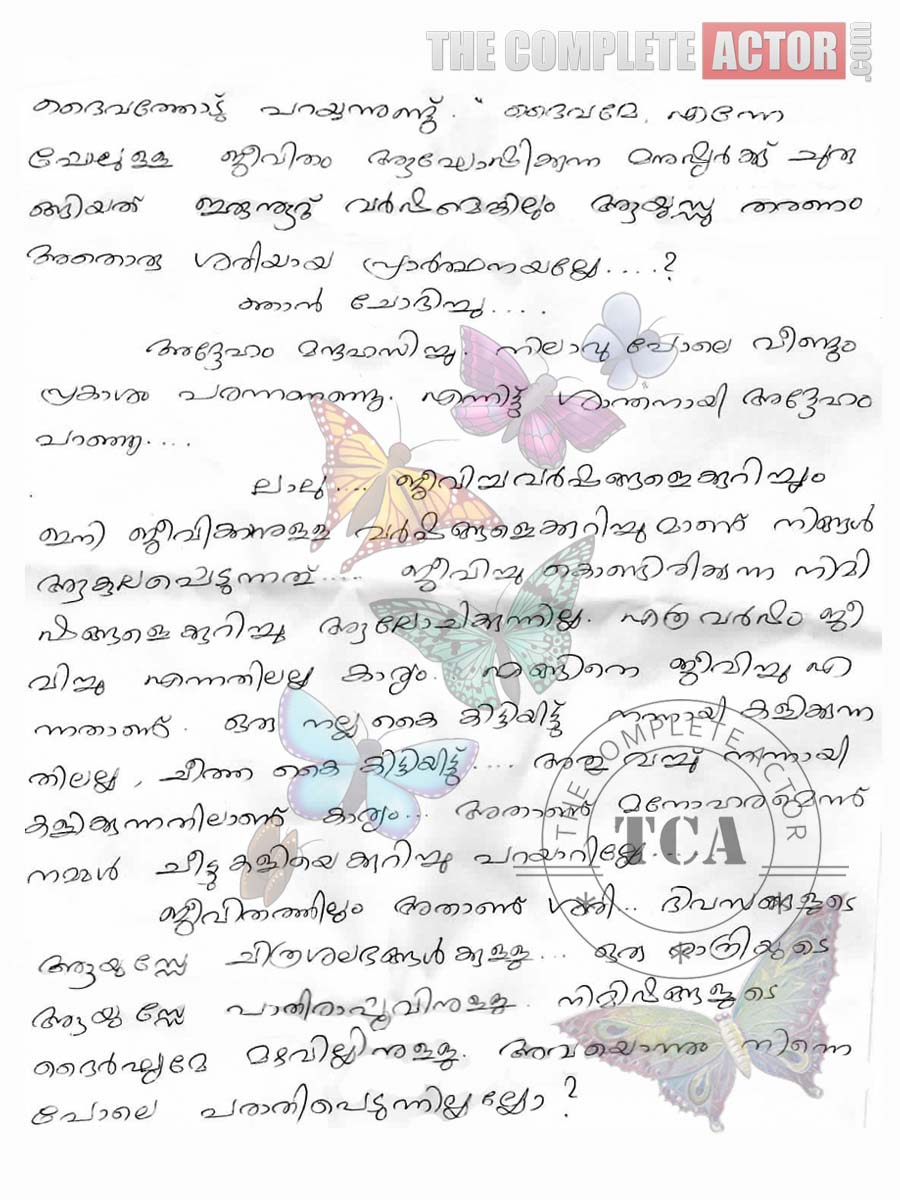 THE COMPLETE ACTOR.com
ദൈവത്തോട് പറയുന്നുണ്ട്. " ദൈവമേ, എന്നേ
പോലുള്ള ജീവിതം ആഘോഷിക്കുന്ന മനുഷ്യർക്ക് ചുരു
ങ്ങിയത് ഇരുന്നൂറ് വർഷമെങ്കിലും ആയുസ്സു തരണം
അതൊരു ശരിയായ പ്രാർത്ഥനയല്ലേ....?
ഞാൻ ചോദിച്ചു....
അദ്ദേഹം മന്ദഹസിച്ചു. നിലാവു പോലെ വീണ്ടും
പ്രകാശം പരന്നണഞ്ഞു. എന്നിട്ട് ശാന്തനായി അദ്ദേഹം
പറഞ്ഞു....
ലാലു.... ജീവിച്ച വർഷങ്ങളെക്കുറിച്ചും
ഇനി ജീവിക്കാനുള്ള വർഷങ്ങളെക്കുറിച്ചുമാണ് നിങ്ങൾ
ആകുലപ്പെടുന്നത്..... ജീവിച്ചു കൊണ്ടിരിക്കുന്ന നിമി
ഷങ്ങളെക്കുറിച്ചു ആലോചിക്കുന്നില്ല. എത്ര വർഷം ജീ
വിച്ചു എന്നതിലല്ല കാര്യം... എങ്ങിനെ ജീവിച്ചു എ
ന്നതാണ്. ഒരു നല്ല കൈ കിട്ടിയിട്ട് നന്നായി കളിക്കുന്ന
തിലല്ല, ചീത്ത കൈ കിട്ടിയിട്ട്.... അതു വച്ച് നന്നായി
കളിക്കുന്നതിലാണ് കാര്യം... അതാണ് മനോഹരമെന്ന്
നമ്മൾ ചീട്ടു കളിയെക്കുറിച്ചു പറയാറില്ലേ...
ജീവിതത്തിലും അതാണ് ശരി.. ദിവസങ്ങളുടെ
ആയുസ്സേ ചിത്രശലഭങ്ങൾക്കുള്ളു... ഒരു രാത്രിയുടെ
ആയുസ്സേ പാതിരാപ്പൂവിനുള്ളു. നിമിഷങ്ങളുടെ
ദൈർഘ്യമേ മഴവില്ലിനുള്ളു. അവയൊന്നും നിന്നെ
പോലെ പരാതിപെടുന്നില്ലല്ലോ?
THE COMPLETE ACTOR
TCA